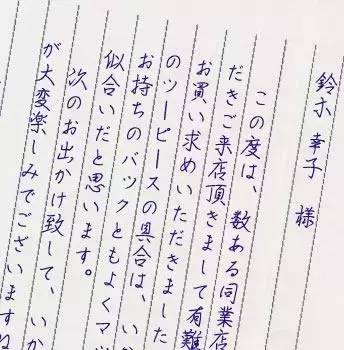 鈴木 幸子 様
この度は、数ある同業店
だきご来店頂きまして有難
お買い求めいただきました
のツーピースの具合は、い
お持ちのバックともよくマ
似合いだと思います。
次のお出かけ致して、いか
が大変楽しみでございますね